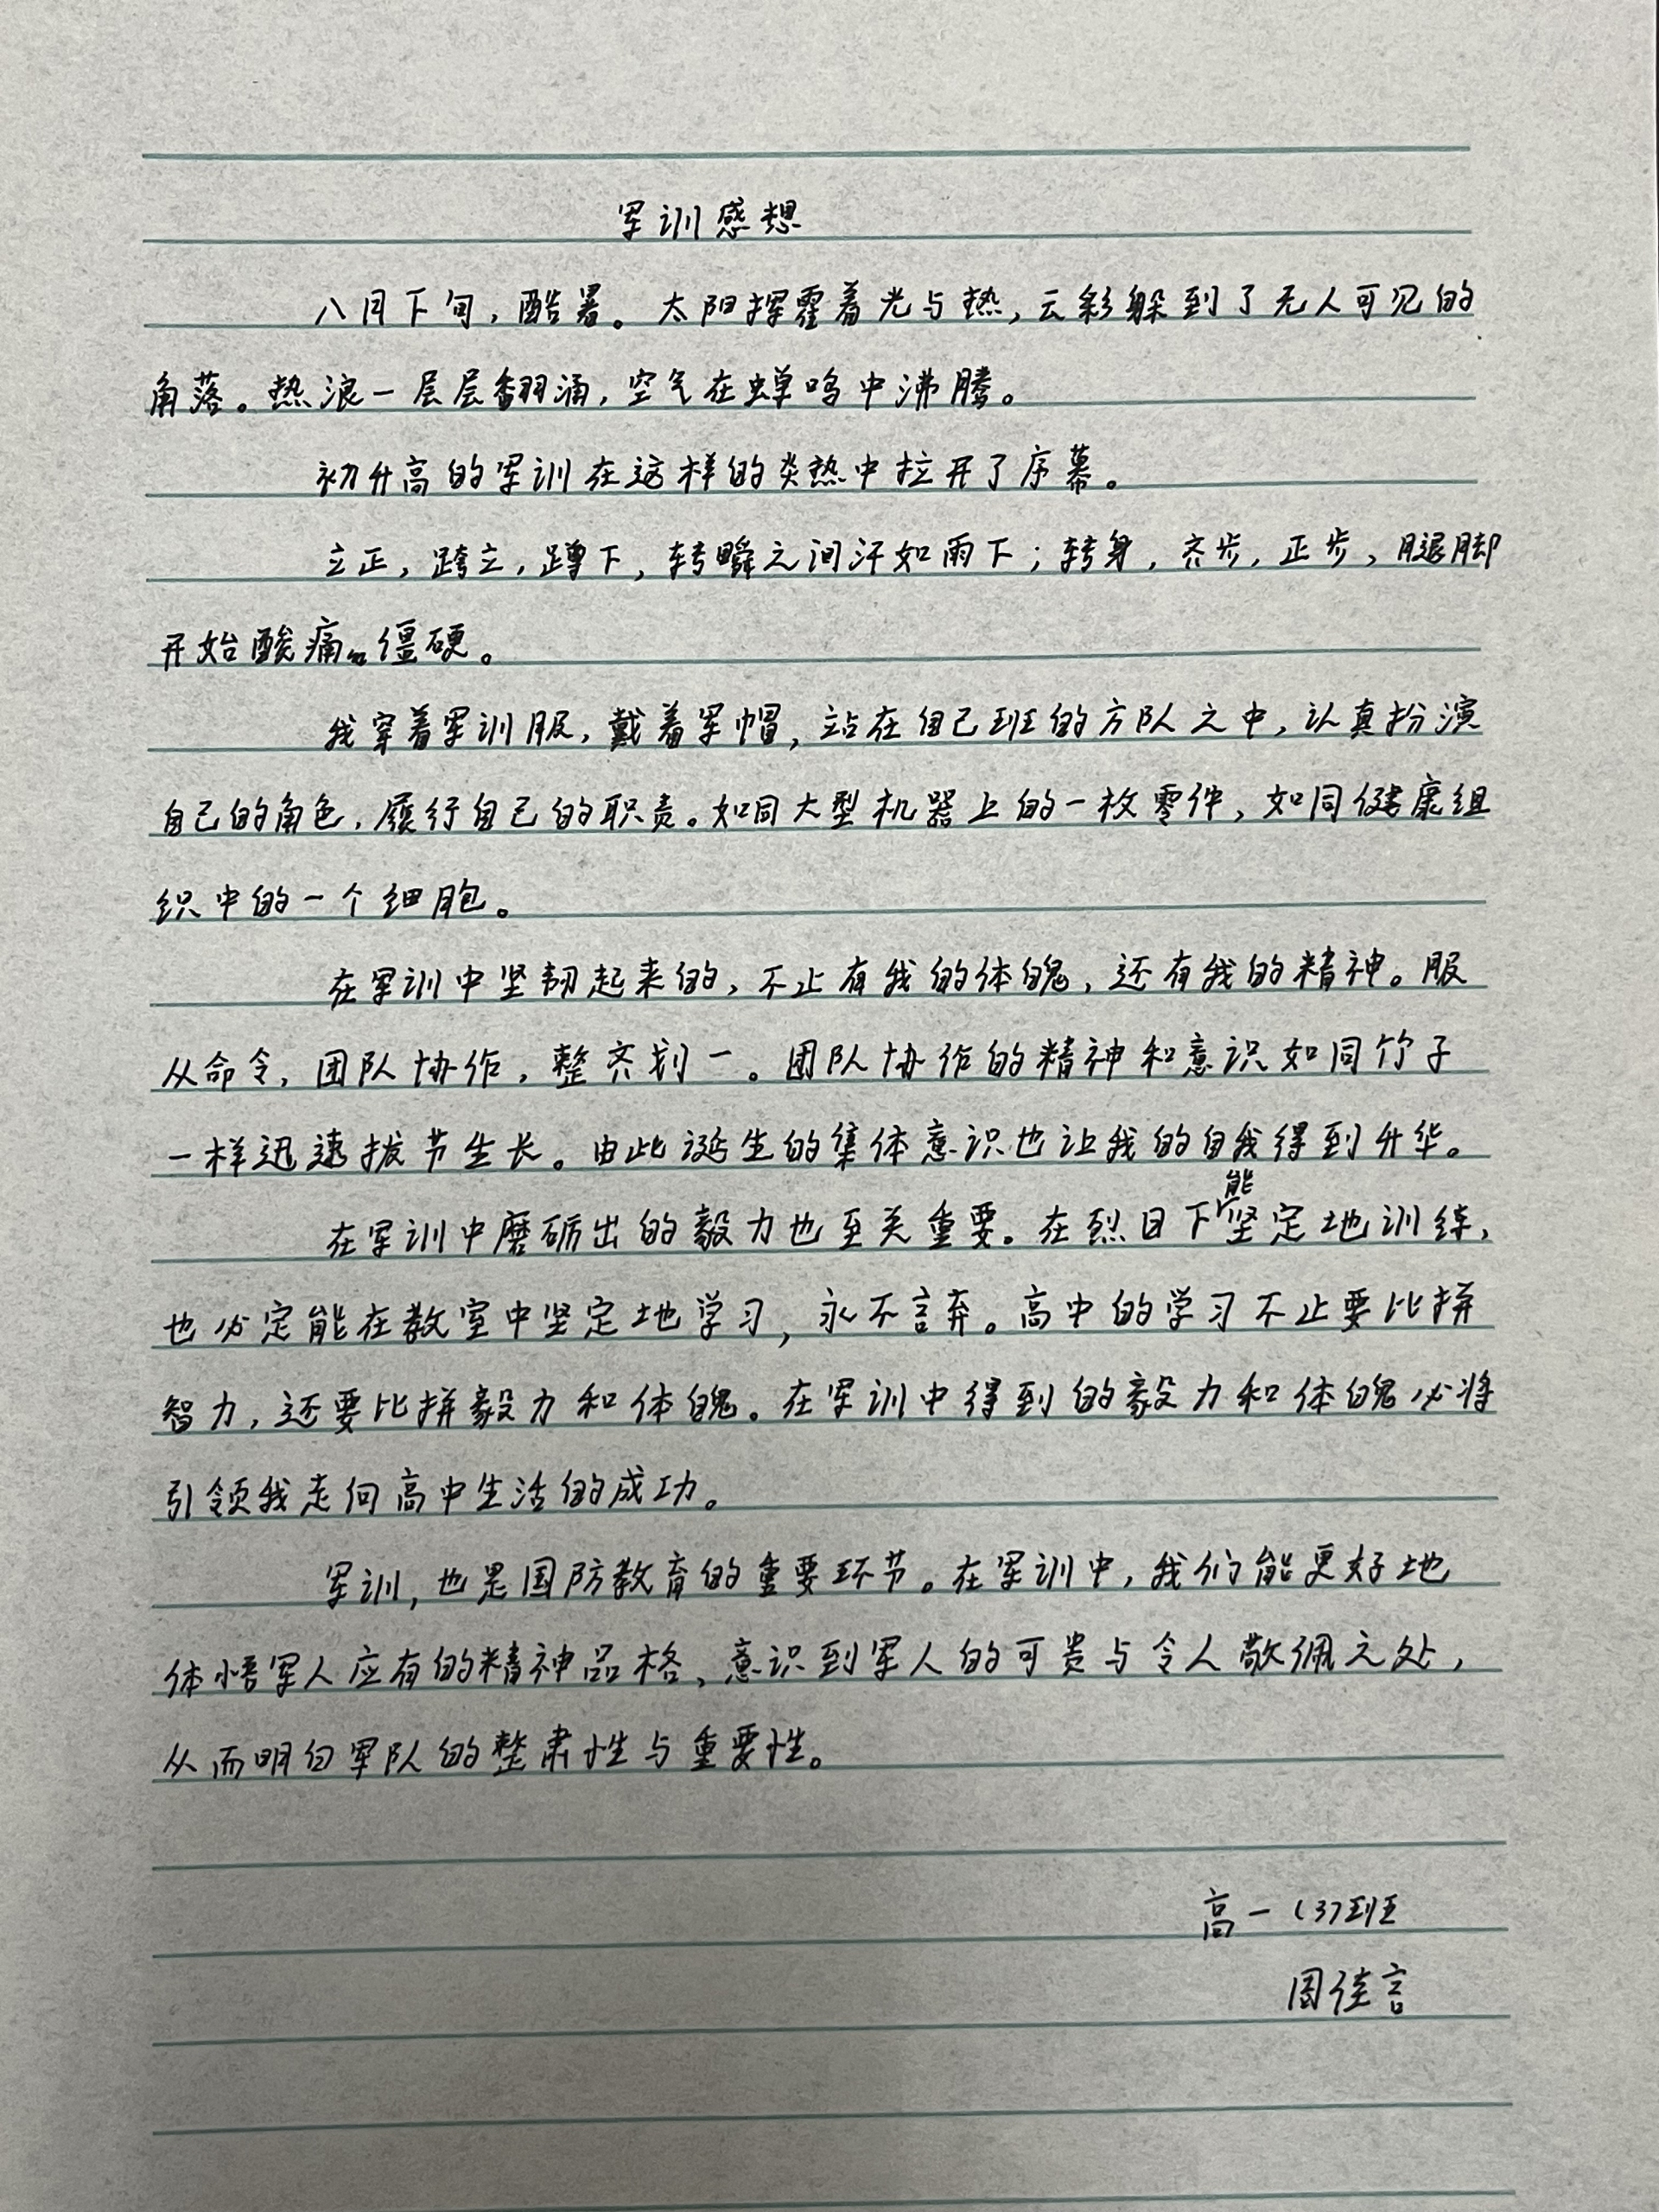 军训感想
八月下旬，酷暑。太阳挥霍着光与热，云彩躲到了无人可见的
角落。热浪一层层翻涌，空气在蝉鸣中沸腾。
初升高的军训在这样的炎热中拉开了序幕。
立正，跨立，蹲下，转瞬之间汗如雨下；转身，齐步，正步，腿脚
开始酸痛僵硬。
我穿着军训服，戴着军帽，站在自己班的方队之中，认真扮演
自己的角色，履行自己的职责。如同大型机器上的一枚零件，如同健康组
织中的一个细胞。
在军训中坚韧起来的，不止有我的体魄，还有我的精神。服
从命令，团队协作，整齐划一。团队协作的精神和意识如同竹子
一样迅速拔节生长。由此诞生的集体意识也让我的自我得到升华。
在军训中磨砺出的毅力也至关重要。在烈日下能坚定地训练，
也必定能在教室中坚定地学习，永不言弃。高中的学习不止要比拼
智力，还要比拼毅力和体魄。在军训中得到的毅力和体魄必将
引领我走向高中生活的成功。
军训，也是国防教育的重要环节。在军训中，我们能更好地
体悟军人应有的精神品格，意识到军人的可贵与令人敬佩之处，
从而明白军队的整肃性与重要性。
高一（3）班
周佳言